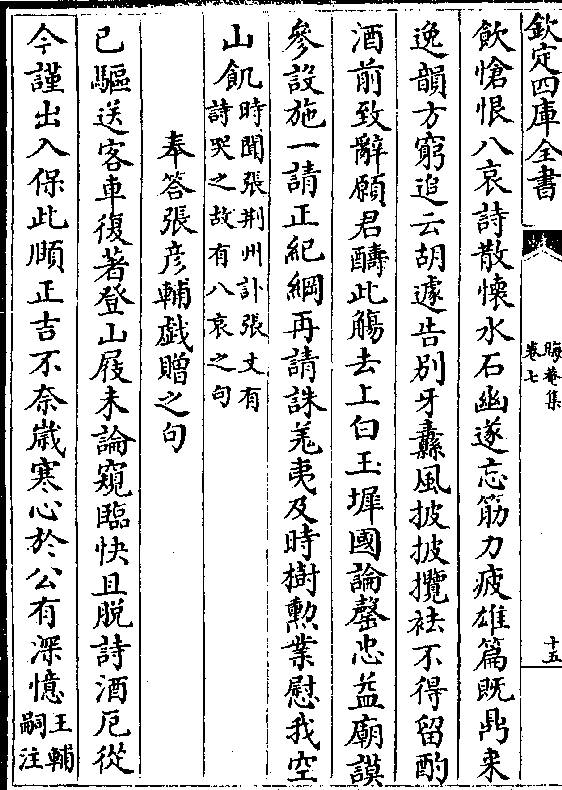 欽定四庫全書
晦菴集
卷七
十五
飲愴恨八哀詩散懷水石幽遂忘筋力疲雄篇既鼎来
逸韻方窮追云胡遽告别牙纛風披披攬袪不得留酌
酒前致辭願君醻此觴去上白玉墀國論罄忠益廟謨
參設施一請正紀綱再請誅羌夷及時樹勲業慰我空
山飢時聞張荆州訃張丈有
詩哭之故有八哀之句
奉答張彦輔戯贈之句
已驅送客車復著登山屐未論窺臨快且脱詩酒厄從
今謹出入保此順正吉不奈嵗寒心於公有深憶王輔
嗣注